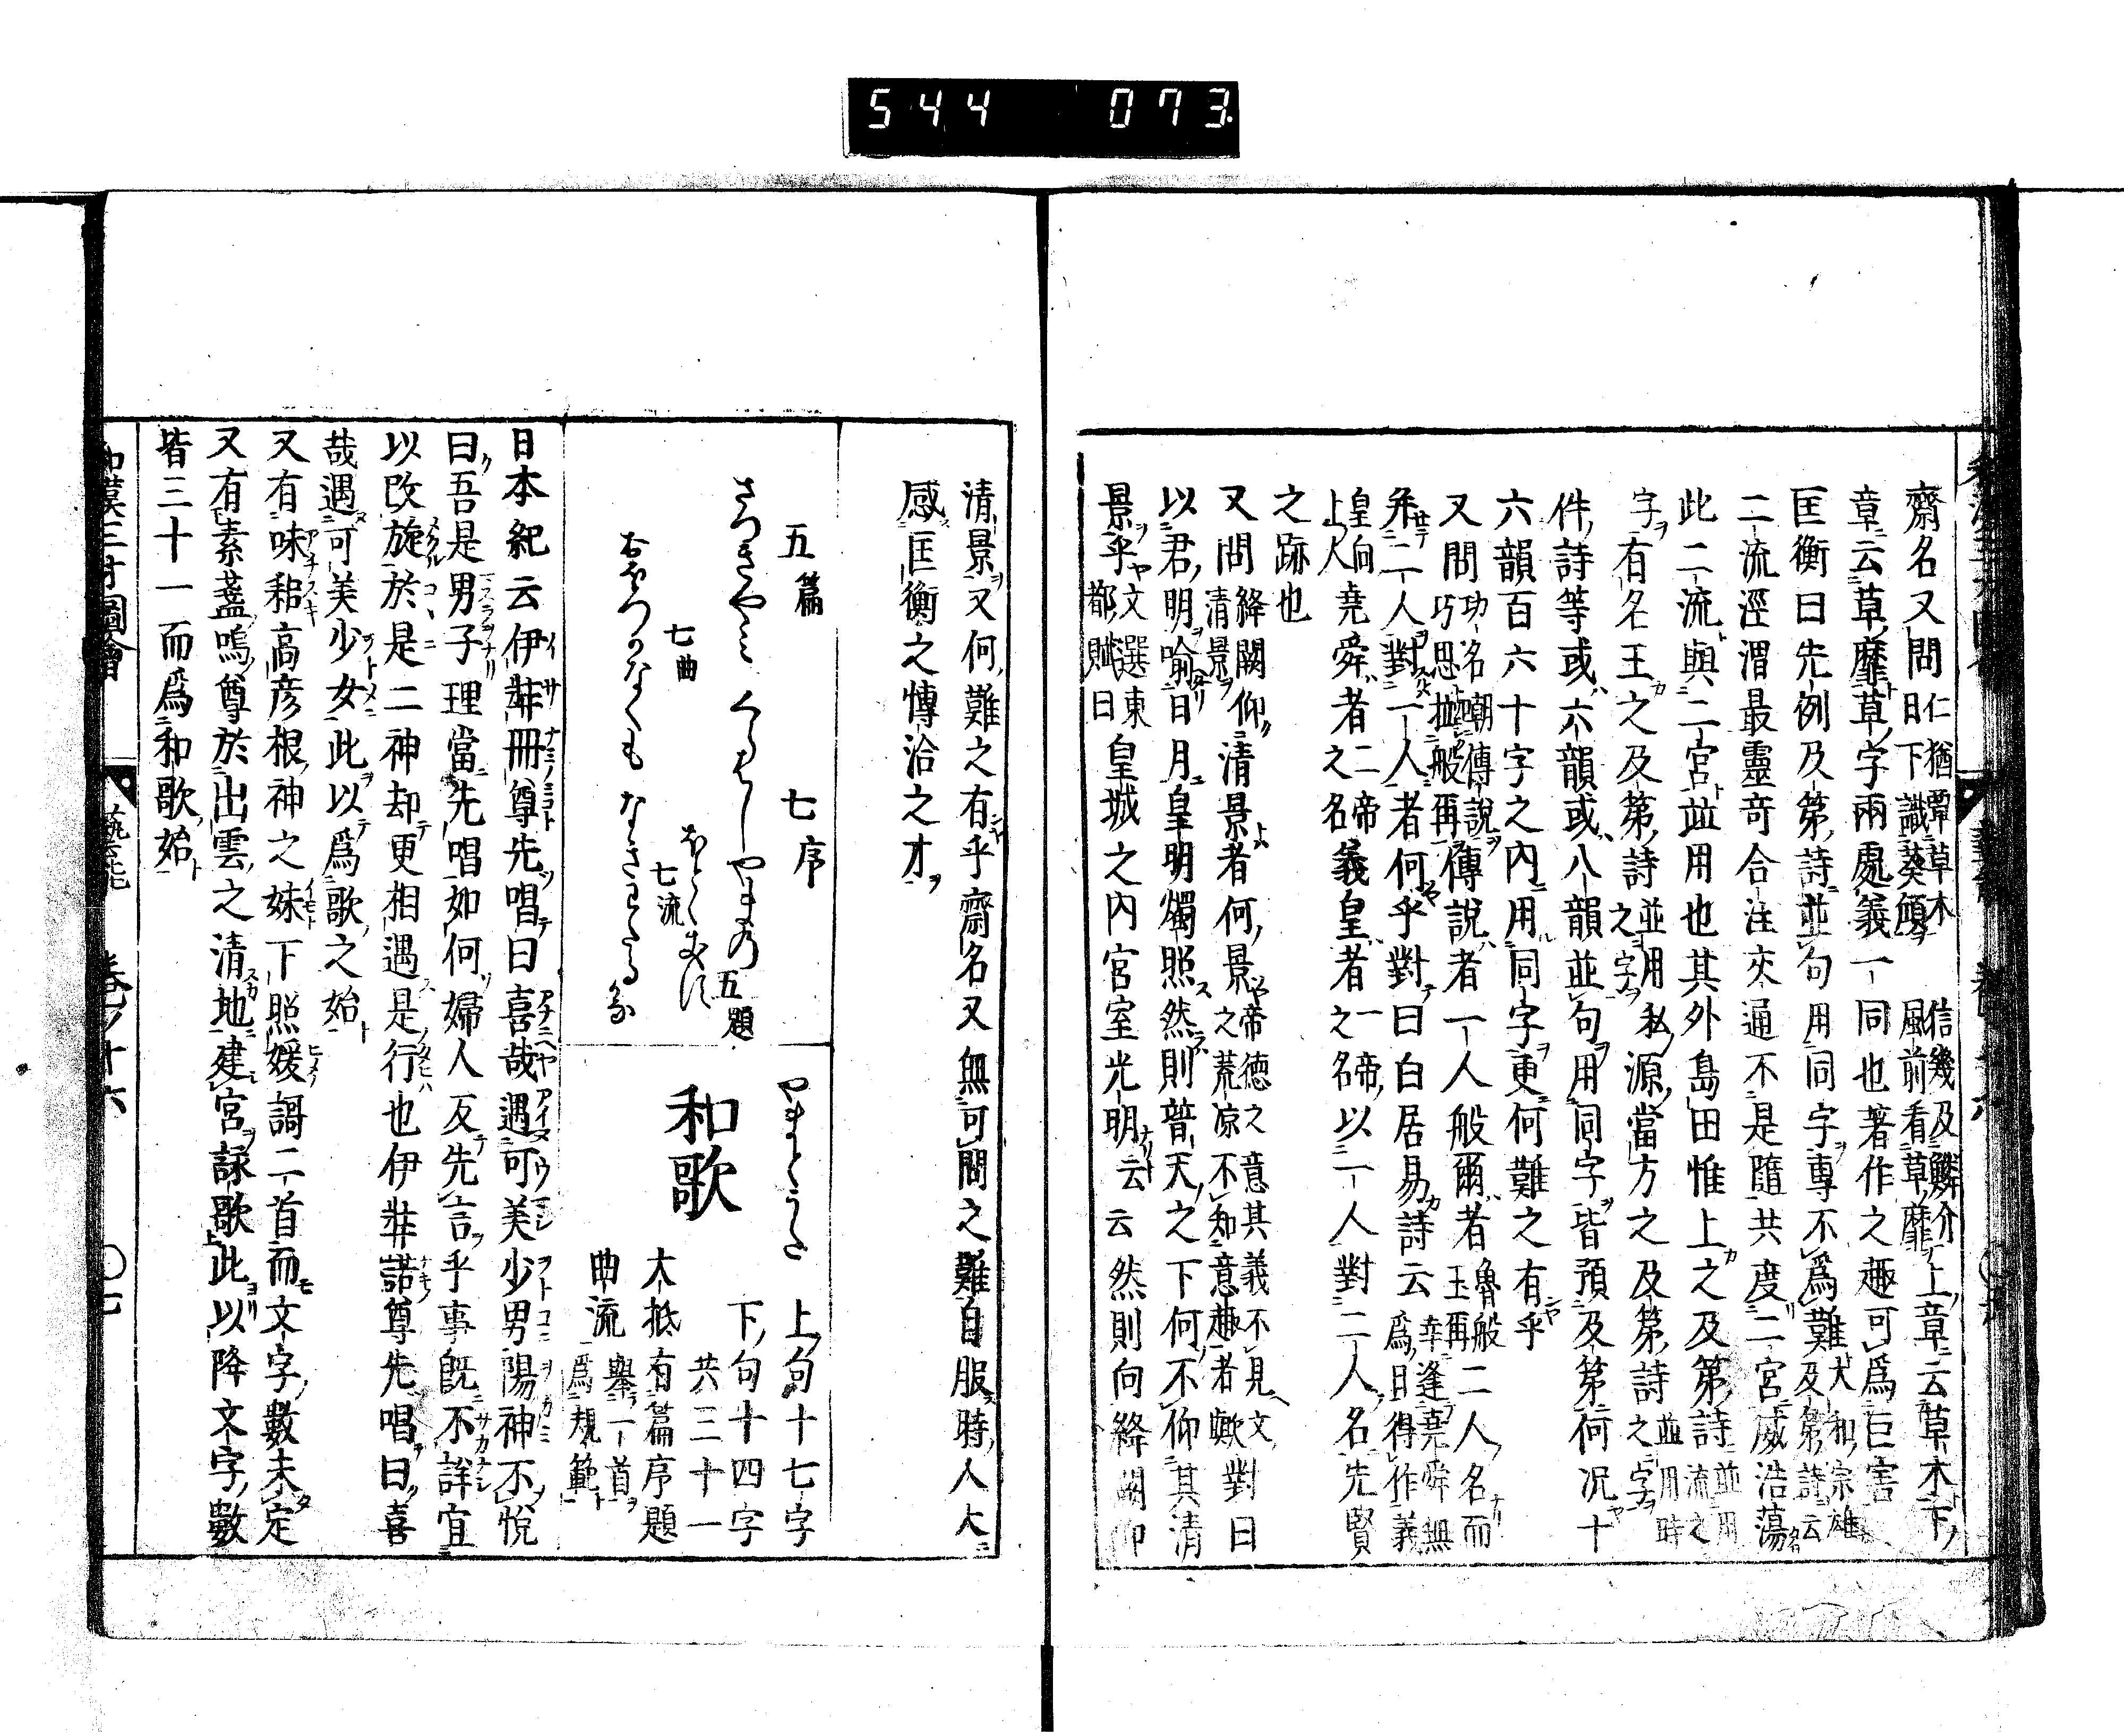 544 073
齋名又問曰仁猶覃草木下識葵傾 信幾及鱗介風前看草靡 上章云草木下
章云草靡草字兩處義一同也著作之趣可爲巨害
匡衡曰先例及第詩並句用同字專不爲難大和宗雄及第詩云
二流涇渭最靈奇合注夾通不是隨共度二宮威浩蕩
此二流與二宮並用也其外島田惟上之及第詩並用流之
字有名王之及第詩並用私之字源當方之及第詩並用時之字
件詩等或六韻或八韻並句用同字皆預及第何况十
六韻百六十字之内用同字更何難之有乎
又問功名嘲傅説巧思拙般再傅説者一人般爾者魯般玉再二人名而
乖二人對一人者何乎對曰白居易詩云幸逢堯舜無爲日得作羲
皇向上人堯舜者二帝之名羲皇者一帝之名以一人對二人名先賢
之跡也
又問絳闕仰清景清景者何景帝徳之意其義不見文之荒凉不知意趣者歟對曰
以君明喩日月皇明燭照然則普天之下何不仰其清
景乎文選東都賦曰皇城之内宮室光明云云然則向絳闕仰
清景又何難之有乎齋名又無可問之難自服時人大
感匡衡之愽洽之才
五篇 七序
さつきやみ くらはしやまの 五題
七曲 ほとゝきす 七流
おほつかなくも なきわたるかな
やまとうた
和歌
上句十七字
下句十四字
共三十一
大抵有篇序題
曲流 擧一首爲規範
日本紀云伊弉冊尊先唱曰喜哉遇可美少男陽神不悦
曰吾是男子理當先唱如何婦人反先言乎事旣不詳宜
以改旋於是二神却更相遇是行也伊弉諾尊先唱曰喜
哉遇可美少女此以爲歌之始
又有味耜高彦根神之妹下照媛謌二首而文字數未定
又有素盞嗚尊於出雲之清地建宮詠歌此以降文字數
皆三十一而爲和歌始
和漢三才圖會 藝能 卷ノ十六 〇七